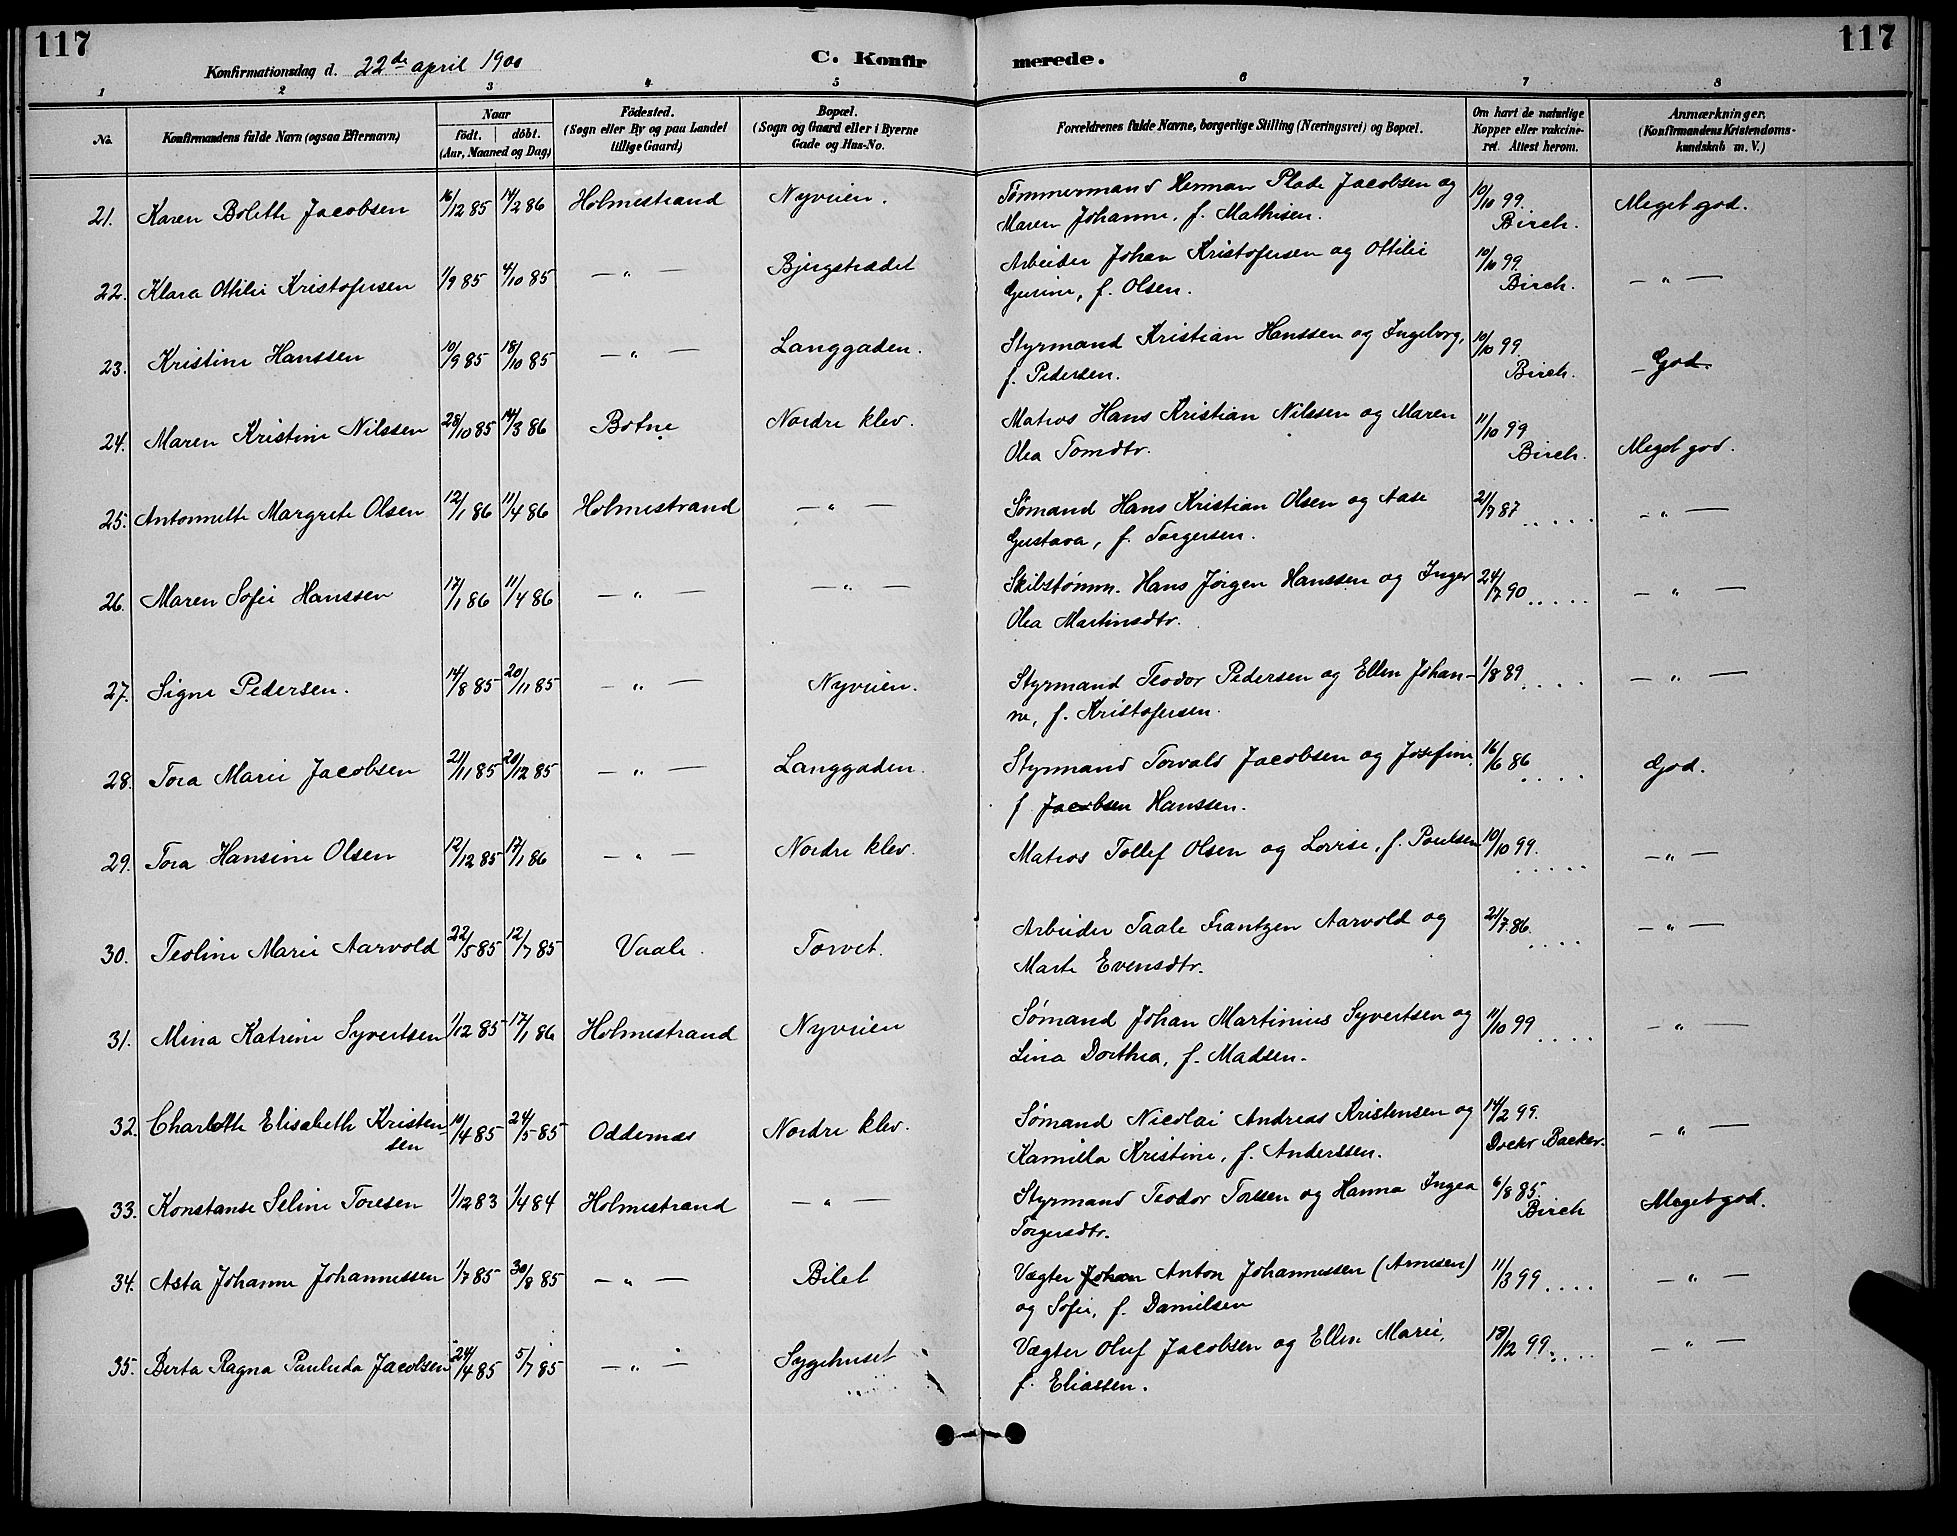 117
Konfirmationsdag d. 22de april 1900
C. Konfirmerede.
117
1 2 3 4 5 6 7 8
No.
Konfirmandens fulde Navn (ogsaa Efternavn)
Naar
født. døbt.
(Aar, Maaned og Dag)
Födested.
(Sogn eller By og paa Landet
tillige Gaard)
Bopæl.
(Sogn og Gaard eller i Byerne
Gade og Hus-No.
Forældrenes fulde Navne, borgerlige Stilling (Næringsvei) og Bopæl.
Om havt de naturlige
Kopper eller vakcine-
ret. Attest herom.
Anmærkninger.
(Konfirmandens Kristendoms-
kundskab m. V.)
21. Karen Bolette Jacobsen 16/12 85 14/2 86 Holmestrand Nyveien. Tömmermand Herman Plade Jacobsen og 10/10 99. Meget god.
Maren Johanne, f. Mathisen. Birch.
22. Klara Ottilie Kristofersen 1/9 85 4/10 85 — „ — Bjergstrædet Arbeider Johan Kristofersen og Ottilie 10/10 99. — „ —
Gurine, f. Olsen. Birch.
23. Kristine Hanssen 10/9 85 18/10 85 — „ — Langgaden. Styrmand Kristian Hanssen og Ingeborg, 10/10 99. God.
f. Pedersen. Birch.
24. Maren Kristine Nilssen 28/10 85 14/3 86 Botne Nordre klev. Matros Hans Kristian Nilssen og Maren 11/10 99 Meget god.
Olea Tomdtr. Birch.
25. Antonnette Margrete Olsen 12/1 86 11/4 86 Holmestrand — „ — Sømand Hans Kristian Olsen og Aase 21/7 87 ..... — „ —
Gustava, f. Torgersen.
26. Maren Sofie Hanssen 17/1 86 11/4 86 — „ — — „ — Skibstømm. Hans Jørgen Hanssen og Inger 24/7 90 ..... — „ —
Olea Martinsdtr.
27. Signe Pedersen. 14/8 85 20/11 85 — „ — Nyveien. Styrmand Teodor Pedersen og Ellen Johan- 1/8 89 ..... — „ —
ne, f. Kristofersen.
28. Tora Marie Jacobsen 21/11 85 20/12 85 — „ — Langgaden. Styrmand Torvald Jacobsen og Josefine, 16/6 86 ..... God.
f. Jacobsen Hanssen.
29. Tora Hansine Olsen 12/12 85 17/1 86 — „ — Nordre klev. Matros Tollef Olsen og Lovise, f. Poulsen 10/10 99. ..... — „ —
30. Teoline Marie Aarvold 22/5 85 12/7 85 Vaale. Torvet. Arbeider Taale Frantzen Aarvold og 21/7 86 .... — „ —
Marte Evensdtr.
31. Mina Katrine Syvertsen 1/12 85 17/1 86 Holmestrand Nyveien Sømand Johan Martinius Syvertsen og 11/10 99 .... — „ —
Lina Dorthea, f. Madsen.
32. Charlotte Elisabeth Kristen- 10/4 85 24/5 85 Oddernes Nordre klev. Sømand Nicolai Andreas Kristensen og 14/2 99. — „ —
sen Kamilla Kristine, f. Anderssen. Backer.
33. Konstanse Seline Toresen 1/12 83 1/4 84 Holmestrand — „ — Styrmand Teodor Toresen og Hanna Ingea 6/8 85. Meget god.
Torgersdtr. Birch
34. Asta Johanne Johannessen 1/7 85 30/8 85 — „ — Bilet Vægter Johan Anton Johannessen (Arnesen) 11/3 99 .... — „ —
og Sofie, f. Danielsen
35. Berta Ragna Paulida Jacobsen 24/4 85 5/7 85 — „ — Sygehuset Vægter Oluf Jacobsen og Ellen Marie, 13/12 99. .... — „ —
f. Eliassen.